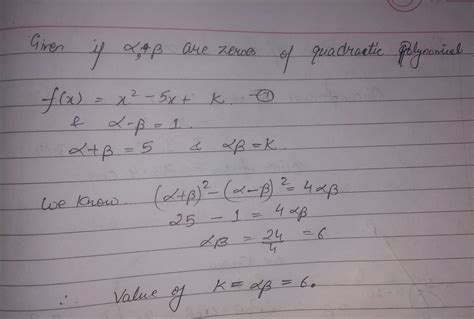 Given if α, & β are zeros of quadractic Polynomical
f(x) = x² - 5x + k. ①
& α-β = 1.
α+β = 5 & αβ = k..
We know. (α+β)² - (α-β)² = 4αβ
25 - 1 = 4αβ
αβ = 24/4 = 6
∴ Value of K = αβ = 6.